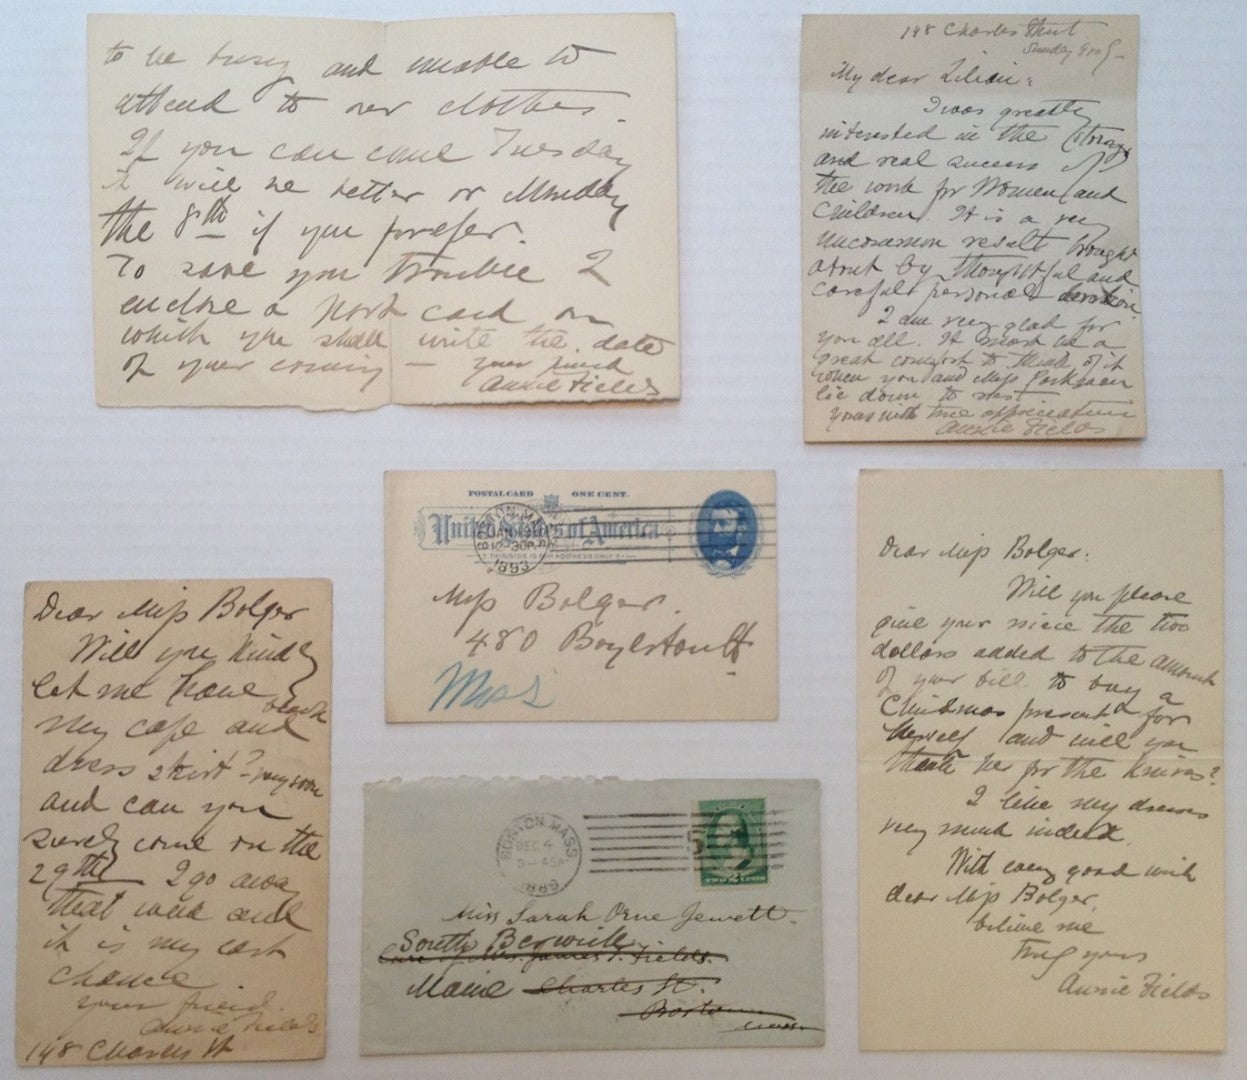 to be busy and unable to
attend to our clothes.
If you can come Tuesday
it will be better or Monday
the 8th if you prefer.
To save you trouble I
enclose a post card on
which you shall write the date
of your coming —
your friend
Annie Fields
148 Charles Street
Sunday Evg —
My dear Lilian:
I was greatly
interested in the story
and real success of
the work for Women and
Children. It is a very
uncommon result brought
about by thoughtful and
careful personal devotion.
I am very glad for
you all. It must be a
great comfort to think of it
when you and Miss Parkman
lie down to rest
yours with true appreciation
Annie Fields
POSTAL CARD ONE CENT.
United States of America
THIS SIDE IS FOR ADDRESS ONLY
BOSTON, MASS.
JAN
12-30P
1893
Miss Bolger.
480 Boylston St.
Mass
Dear Miss Bolger
Will you kindly
let me have
my cape and black
dress skirt? very soon
and can you
surely come on the
29th I go away
that week and
it is my last
chance
your friend.
Annie Fields
148 Charles St
BOSTON MASS
DEC 4
TWO 2 CENTS
Miss Sarah Orne Jewett.
South Berwick
Care of Mrs. James T. Fields.
Maine Charles St.
Boston
Dear Miss Bolger.
Will you please
give your niece the two
dollars added to the amount
of your bill to buy a
Christmas present for
herself and will you
thank her for the knives?
I like my dresses
very much indeed.
With every good wish
dear Miss Bolger,
believe me
Truly yours
Annie Fields